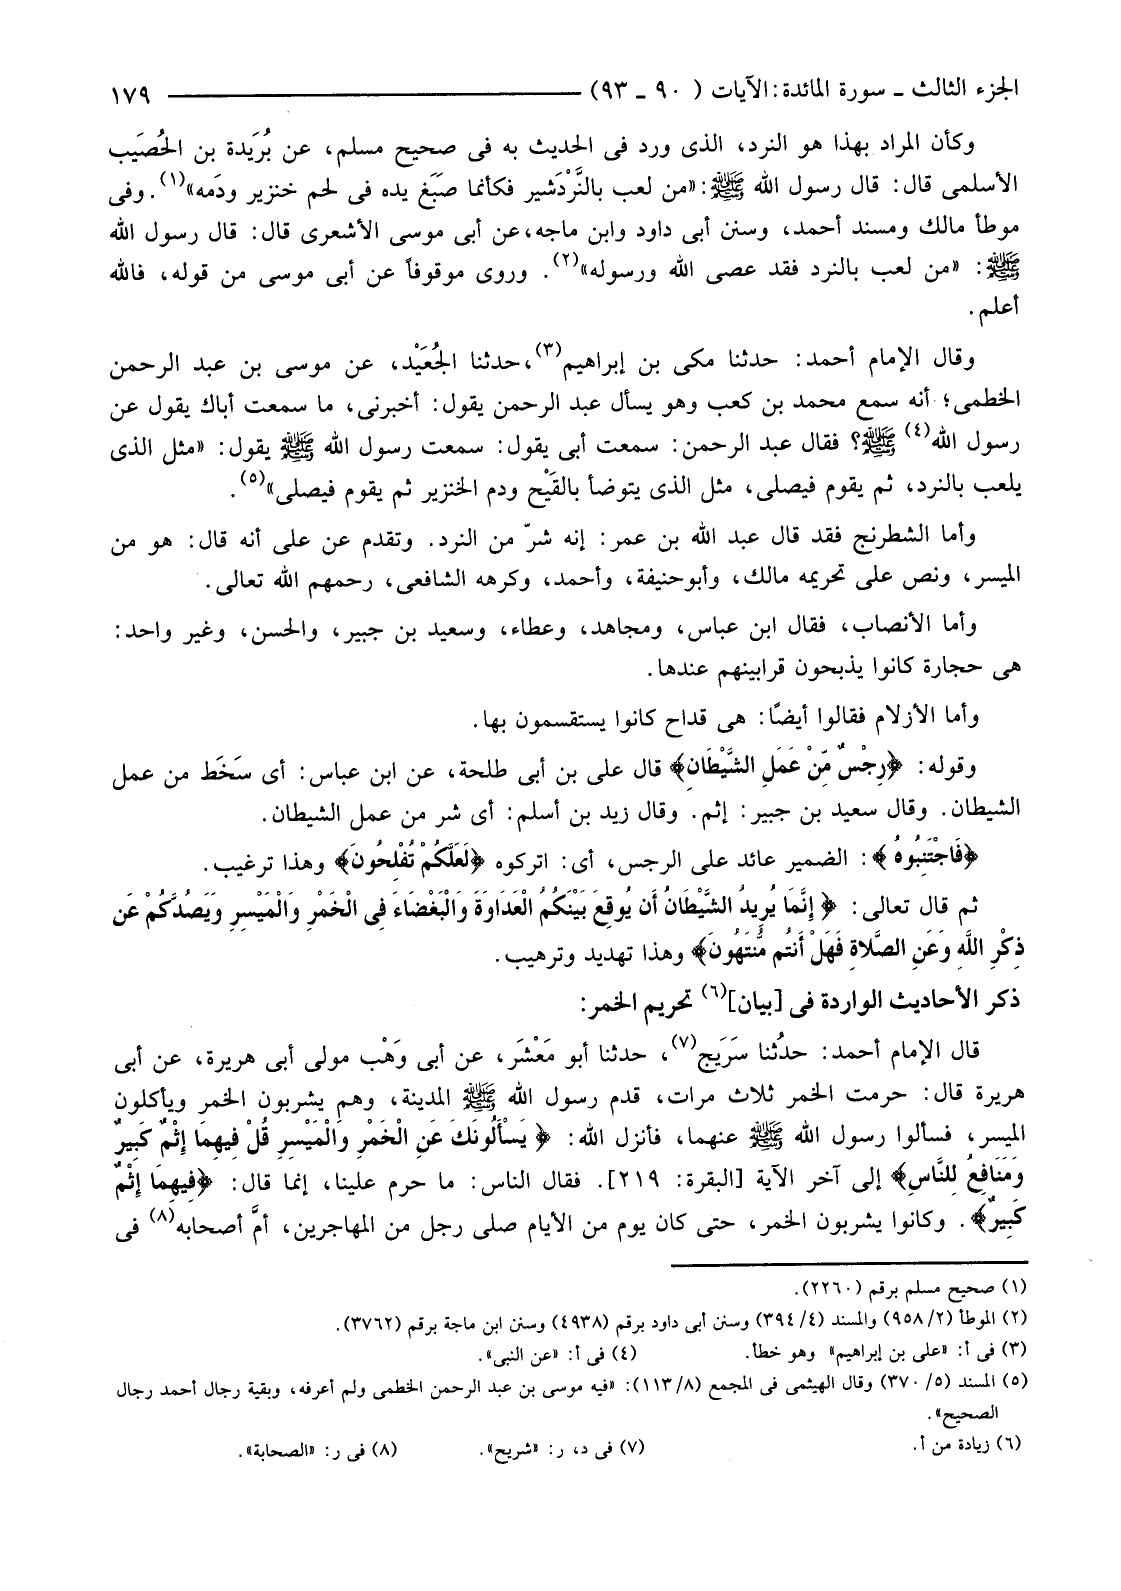 الجزء الثالث ـ سورة المائدة: الآيات ( ٩٠ ـ ٩٣) ١٧٩
وكأن المراد بهذا هو النرد، الذى ورد فى الحديث به فى صحيح مسلم، عن بُرَيدة بن الحُصَيب
الأسلمى قال: قال رسول الله ﷺ: «من لعب بالنَّرْدَشير فكأنما صَبَغ يده فى لحم خنزير ودَمه»(١). وفى
موطأ مالك ومسند أحمد، وسنن أبى داود وابن ماجه، عن أبى موسى الأشعرى قال: قال رسول الله
ﷺ: «من لعب بالنرد فقد عصى الله ورسوله»(٢). وروى موقوفاً عن أبى موسى من قوله، فالله
أعلم.
وقال الإمام أحمد: حدثنا مكى بن إبراهيم(٣)، حدثنا الجُعَيْد، عن موسى بن عبد الرحمن
الخطمى؛ أنه سمع محمد بن كعب وهو يسأل عبد الرحمن يقول: أخبرنى، ما سمعت أباك يقول عن
رسول الله(٤) ﷺ؟ فقال عبد الرحمن: سمعت أبى يقول: سمعت رسول الله ﷺ يقول: «مثل الذى
يلعب بالنرد، ثم يقوم فيصلى، مثل الذى يتوضأ بالقَيْح ودم الخنزير ثم يقوم فيصلى»(٥).
وأما الشطرنج فقد قال عبد الله بن عمر: إنه شرّ من النرد. وتقدم عن على أنه قال: هو من
الميسر، ونص على تحريمه مالك، وأبو حنيفة، وأحمد، وكرهه الشافعى، رحمهم الله تعالى.
وأما الأنصاب، فقال ابن عباس، ومجاهد، وعطاء، وسعيد بن جبير، والحسن، وغير واحد:
هى حجارة كانوا يذبحون قرابينهم عندها.
وأما الأزلام فقالوا أيضًا: هى قداح كانوا يستقسمون بها.
وقوله: ﴿رِجْسٌ مِّنْ عَمَلِ الشَّيْطَانِ﴾ قال على بن أبى طلحة، عن ابن عباس: أى سَخَط من عمل
الشيطان. وقال سعيد بن جبير: إثم. وقال زيد بن أسلم: أى شر من عمل الشيطان.
﴿فَاجْتَنِبُوهُ﴾: الضمير عائد على الرجس، أى: اتركوه ﴿لَعَلَّكُمْ تُفْلِحُونَ﴾ وهذا ترغيب.
ثم قال تعالى: ﴿إِنَّمَا يُرِيدُ الشَّيْطَانُ أَن يُوقِعَ بَيْنَكُمُ الْعَدَاوَةَ وَالْبَغْضَاءَ فِى الْخَمْرِ وَالْمَيْسِرِ وَيَصُدَّكُمْ عَن
ذِكْرِ اللَّهِ وَعَنِ الصَّلاةِ فَهَلْ أَنتُم مُّنتَهُونَ﴾ وهذا تهديد وترهيب.
ذكر الأحاديث الواردة فى [بيان](٦) تحريم الخمر:
قال الإمام أحمد: حدُثنا سَرَيج(٧)، حدثنا أبو مَعْشَر، عن أبى وَهْب مولى أبى هريرة، عن أبى
هريرة قال: حرمت الخمر ثلاث مرات، قدم رسول الله ﷺ المدينة، وهم يشربون الخمر ويأكلون
الميسر، فسألوا رسول الله ﷺ عنهما، فأنزل الله: ﴿يَسْأَلُونَكَ عَنِ الْخَمْرِ وَالْمَيْسِرِ قُلْ فِيهِمَا إِثْمٌ كَبِيرٌ
وَمَنَافِعُ لِلنَّاسِ﴾ إلى آخر الآية [البقرة: ٢١٩]. فقال الناس: ما حرم علينا، إنما قال: ﴿فِيهِمَا إِثْمٌ
كَبِيرٌ﴾. وكانوا يشربون الخمر، حتى كان يوم من الأيام صلى رجل من المهاجرين، أمَّ أصحابه(٨) فى
(١) صحيح مسلم برقم (٢٢٦٠).
(٢) الموطأ (٢/ ٩٥٨) والمسند (٤/ ٣٩٤) وسنن أبى داود برقم (٤٩٣٨) وسنن ابن ماجة برقم (٣٧٦٢).
(٣) فى أ: «على بن إبراهيم» وهو خطأ. (٤) فى أ: «عن النبى».
(٥) المسند (٥/ ٣٧٠) وقال الهيثمى فى المجمع (٨/ ١١٣): «فيه موسى بن عبد الرحمن الخطمى ولم أعرفه، وبقية رجال أحمد رجال
الصحيح».
(٦) زيادة من أ. (٧) فى د، ر: «شريح». (٨) فى ر: «الصحابة».